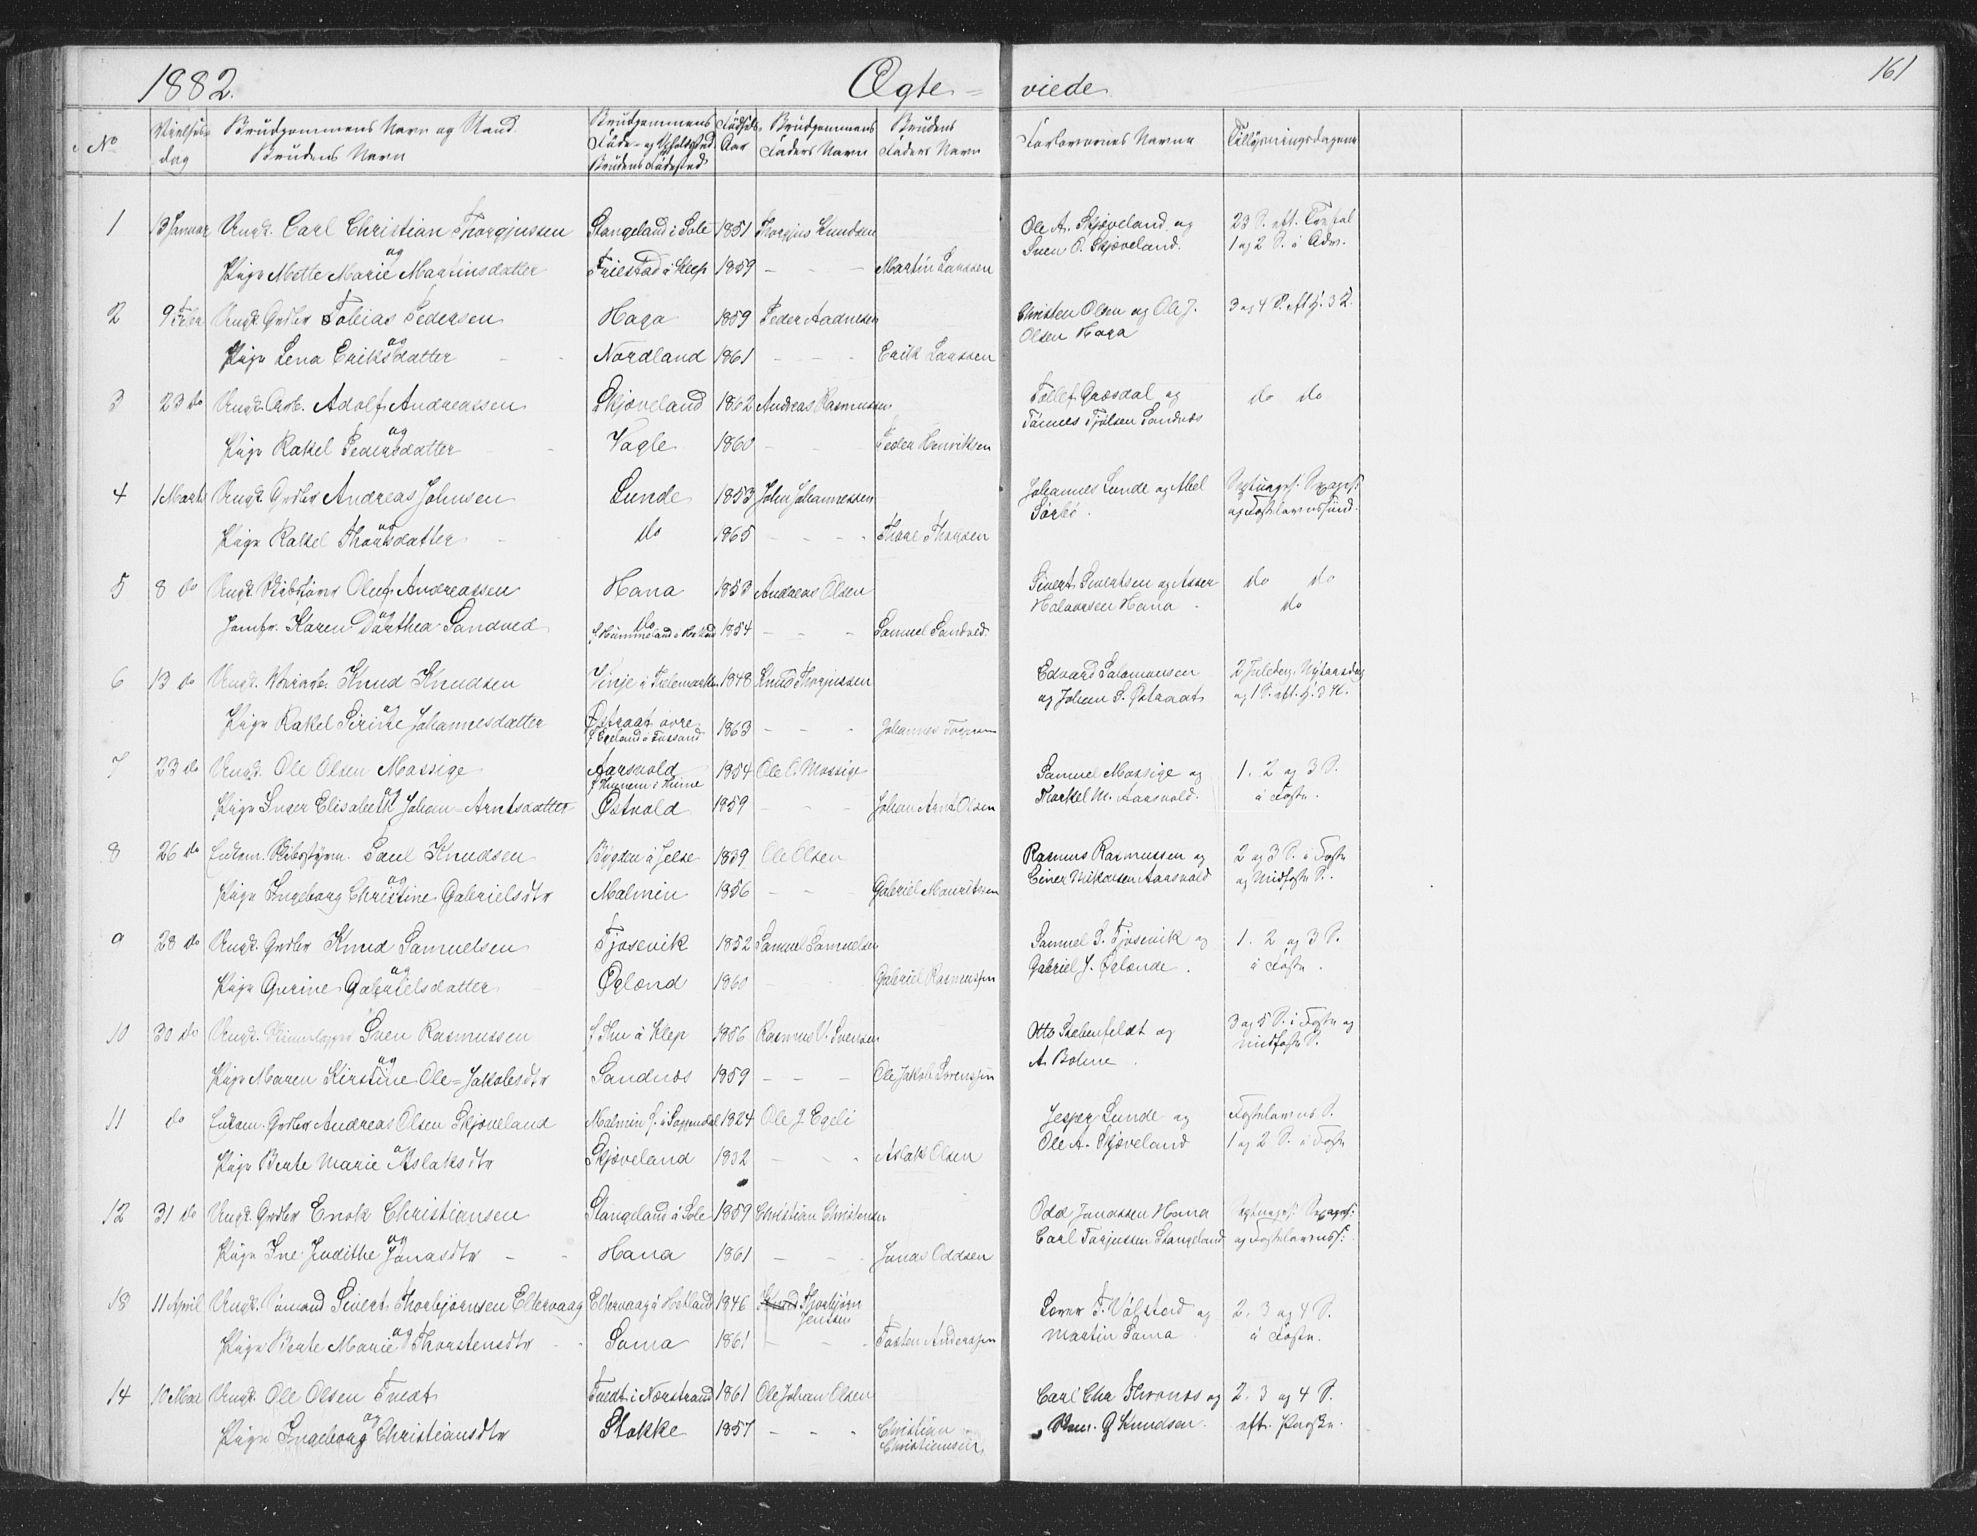 1882. Ægte- viede 161
No Vielses- dag Brudgommens Navn og Stand. Brudens Navn Brudgommens Føde- og Opholdssted Brudens Fødested Fødsels- Aar Brudgommens Faders Navn Brudens Faders Navn Forlovernes Navne Tillysningsdagene
1 13 Januar Ungk. Carl Christian Thorgjussen Stangeland i Sole 1851 Thorgius Knudsen Ole A. Skjæveland og 23 S. eft. Trefol
og Sven O. Skjæveland. 1 og 2 S. i Adv.
Pige Mette Marie Martinsdatter Friestad i Klep 1859 - - - Martin Larssen
2 9 Febr Ungk. Grdbr Tobias Pedersen Haga 1859 Peder Aadnesen Christen Olsen og Ole J. 3 og 4 S. eft H. 3 K.
og Olsen Haga
Pige Lena Eriksdatter - - Nordland 1861 - - - Erik Larssen
3 23 do Ungk. Arb. Adolf Andreassen Skjæveland 1862 Andreas Rasmussen Tollef Græsdal og do do
og Tønnes Tjølsen Sandnæs
Pige Rakel Pedersdatter - - Vagle 1860 - - Peder Henriksen
4 1 Marts Ungk. Grdbr Andreas Johnsen Lunde 1853 John Johannessen Johannes Lunde og Abel Septuages. Sexages.
og Sørbø. og Fastelavnssønd.
Pige Rakel Thoresdatter - - do 1865 - - - - Thore Thorsen
5 8 do Ungk. Skibsfører Oluf Andreassen Hana 1853 Andreas Olsen Sivert Sivertsen og Asser do do
og do Halvorsen Hana. do
Jomfr. Karen Dorthea Sandved f Hummeland i Hetland 1854 - - - Samuel Sandved.
6 13 do Ungk. Knud Knudsen Vinje i Telemarken 1848 Knud Thorgiussen Edvard Salomonsen 2 Juledag, Nytaarsdag
og og Johan S. Østraat og 1 S. eft. H. 3 K.
Pige Rakel Serine Johannesdatter Østraat øvre 1863 - - - Johannes
f Egeland i Fossand
7 23 do Ungk. Ole Olsen Massige Aarsvold 1854 Ole O. Massige Samuel Massige og 1. 2 og 3 S.
og Thorkel M. Aarsvold. i Faste.
Pige Inger Elisabeth Johan-Arntsdatter Østvold 1859 - - - Johan Arnt Olsen
8 26 do Enkem. Skibstøm. Paul Knudsen Bygden i Jelse 1839 Ole Olsen Rasmus Rasmussen og 2 og 3 S. i Faste
og Einer Mikalsen Aarsvold og Midfaste S.
Pige Ingeborg Christine Gabrielsdtr Malmin 1856 - - - Gabriel Mauritssen
9 28 do Ungk. Grdbr Knud Samuelsen Tjøsevik 1852 Samuel Samuelsen Samuel S. Tjøsevik og 1. 2 og 3 S.
og Gabriel J. Øglænde. i Faste.
Pige Gurine Gabrielsdatter - Øglænd 1860 - - Gabriel Rasmussen
10 30 do Ungk. Sven Rasmussen f Thu i Klep 1856 Rasmus V. Svensen Otto Siebenfeldt og 3 og 5 S. i Faste og
og A. Bolme. Midfaste S.
Pige Maren Kirstine Ole-Jakobsdtr Sandnæs 1859 - - - Ole Jakob Sørenssen
11 do Enkem. Grdbr Andreas Olsen Skjæveland Malmin f. i Soggendal 1824 Ole J Egeli Jesper Lunde og Fastelavns S.
og Ole A. Skjæveland 1 og 2 S. i Faste
Pige Berte Marie Aslaksdtr Skjæveland 1832 - - - Aslak Olsen
12 31 do Ungk. Grdbr Enok Christiansen Stangeland i Sole 1859 Christian Christensen Odd Jonassen Hana Septuages. Sexages:
og Carl Torjussen Stangeland og Fastelavnss:
Pige Ine Judithe Jonasdtr - - Hana 1861 - - - Jonas Oddsen
13 11 April Ungk. Sømand Sivert Thorbjørnsen Eltervaag Eltervaag i Hetland 1846 Thorbjørn Jentsen 2. 3 og 4 S.
og Martin Soma. i Faste.
Pige Berte Marie Thorstensdtr - - Soma 1861 - - Tosten Anderssen
14 10 Mai Ungk. Ole Olsen Tvedt Tvedt i Nærstrand 1861 Ole Johan Olsen Carl Chr Thronæs og 2. 3 og 4 S.
og G Knudsen. eft. Paaske.
Pige Ingeborg Christiansdtr Stokke 1857 - - - Christian Christiansen